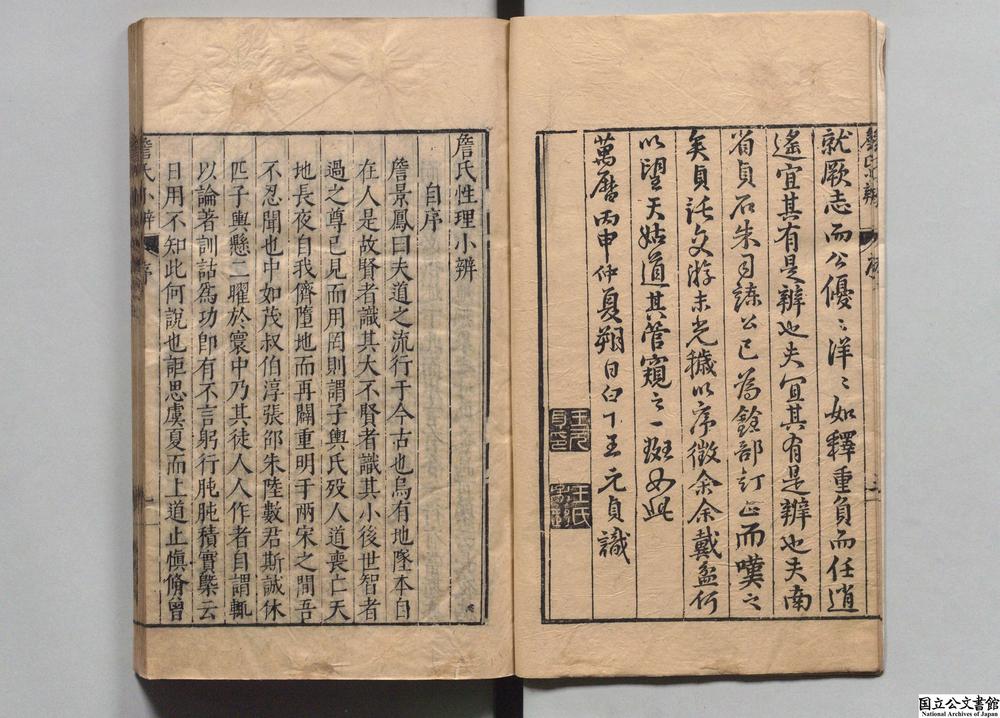 就厥志而公優〻洋〻如釋重負而任逍
遙宜其有是辨也夫宜其有是辨也夫南
省貞石朱司諫公已為銓部訂正而嘆之
矣貞託交游末光穢以序徵余余戴盆何
以望天姑道其管窺之一斑如此
萬曆丙申仲夏朔日白下王元貞識
王元貞印
王氏
詹氏性理小辨
自序
詹景鳳曰夫道之流行于今古也烏有地墜本自
在人是故賢者識其大不賢者識其小後世智者
過之尊已見而用罔則謂子輿氏歿人道喪亡天
地長夜自我儕墮地而再闢重明于兩宋之間吾
不忍聞也中如茂叔伯淳張邵朱陸數君斯誠休
匹子輿懸二曜於寰中乃其徒人人作者自謂輒
以論著訓詁為功卽有不言躬行肫肫積實槩云
日用不知此何說也詎思虞夏而上道止愼脩曾
詹氏小辨
序
一
国立公文書館
National Archives of Japan